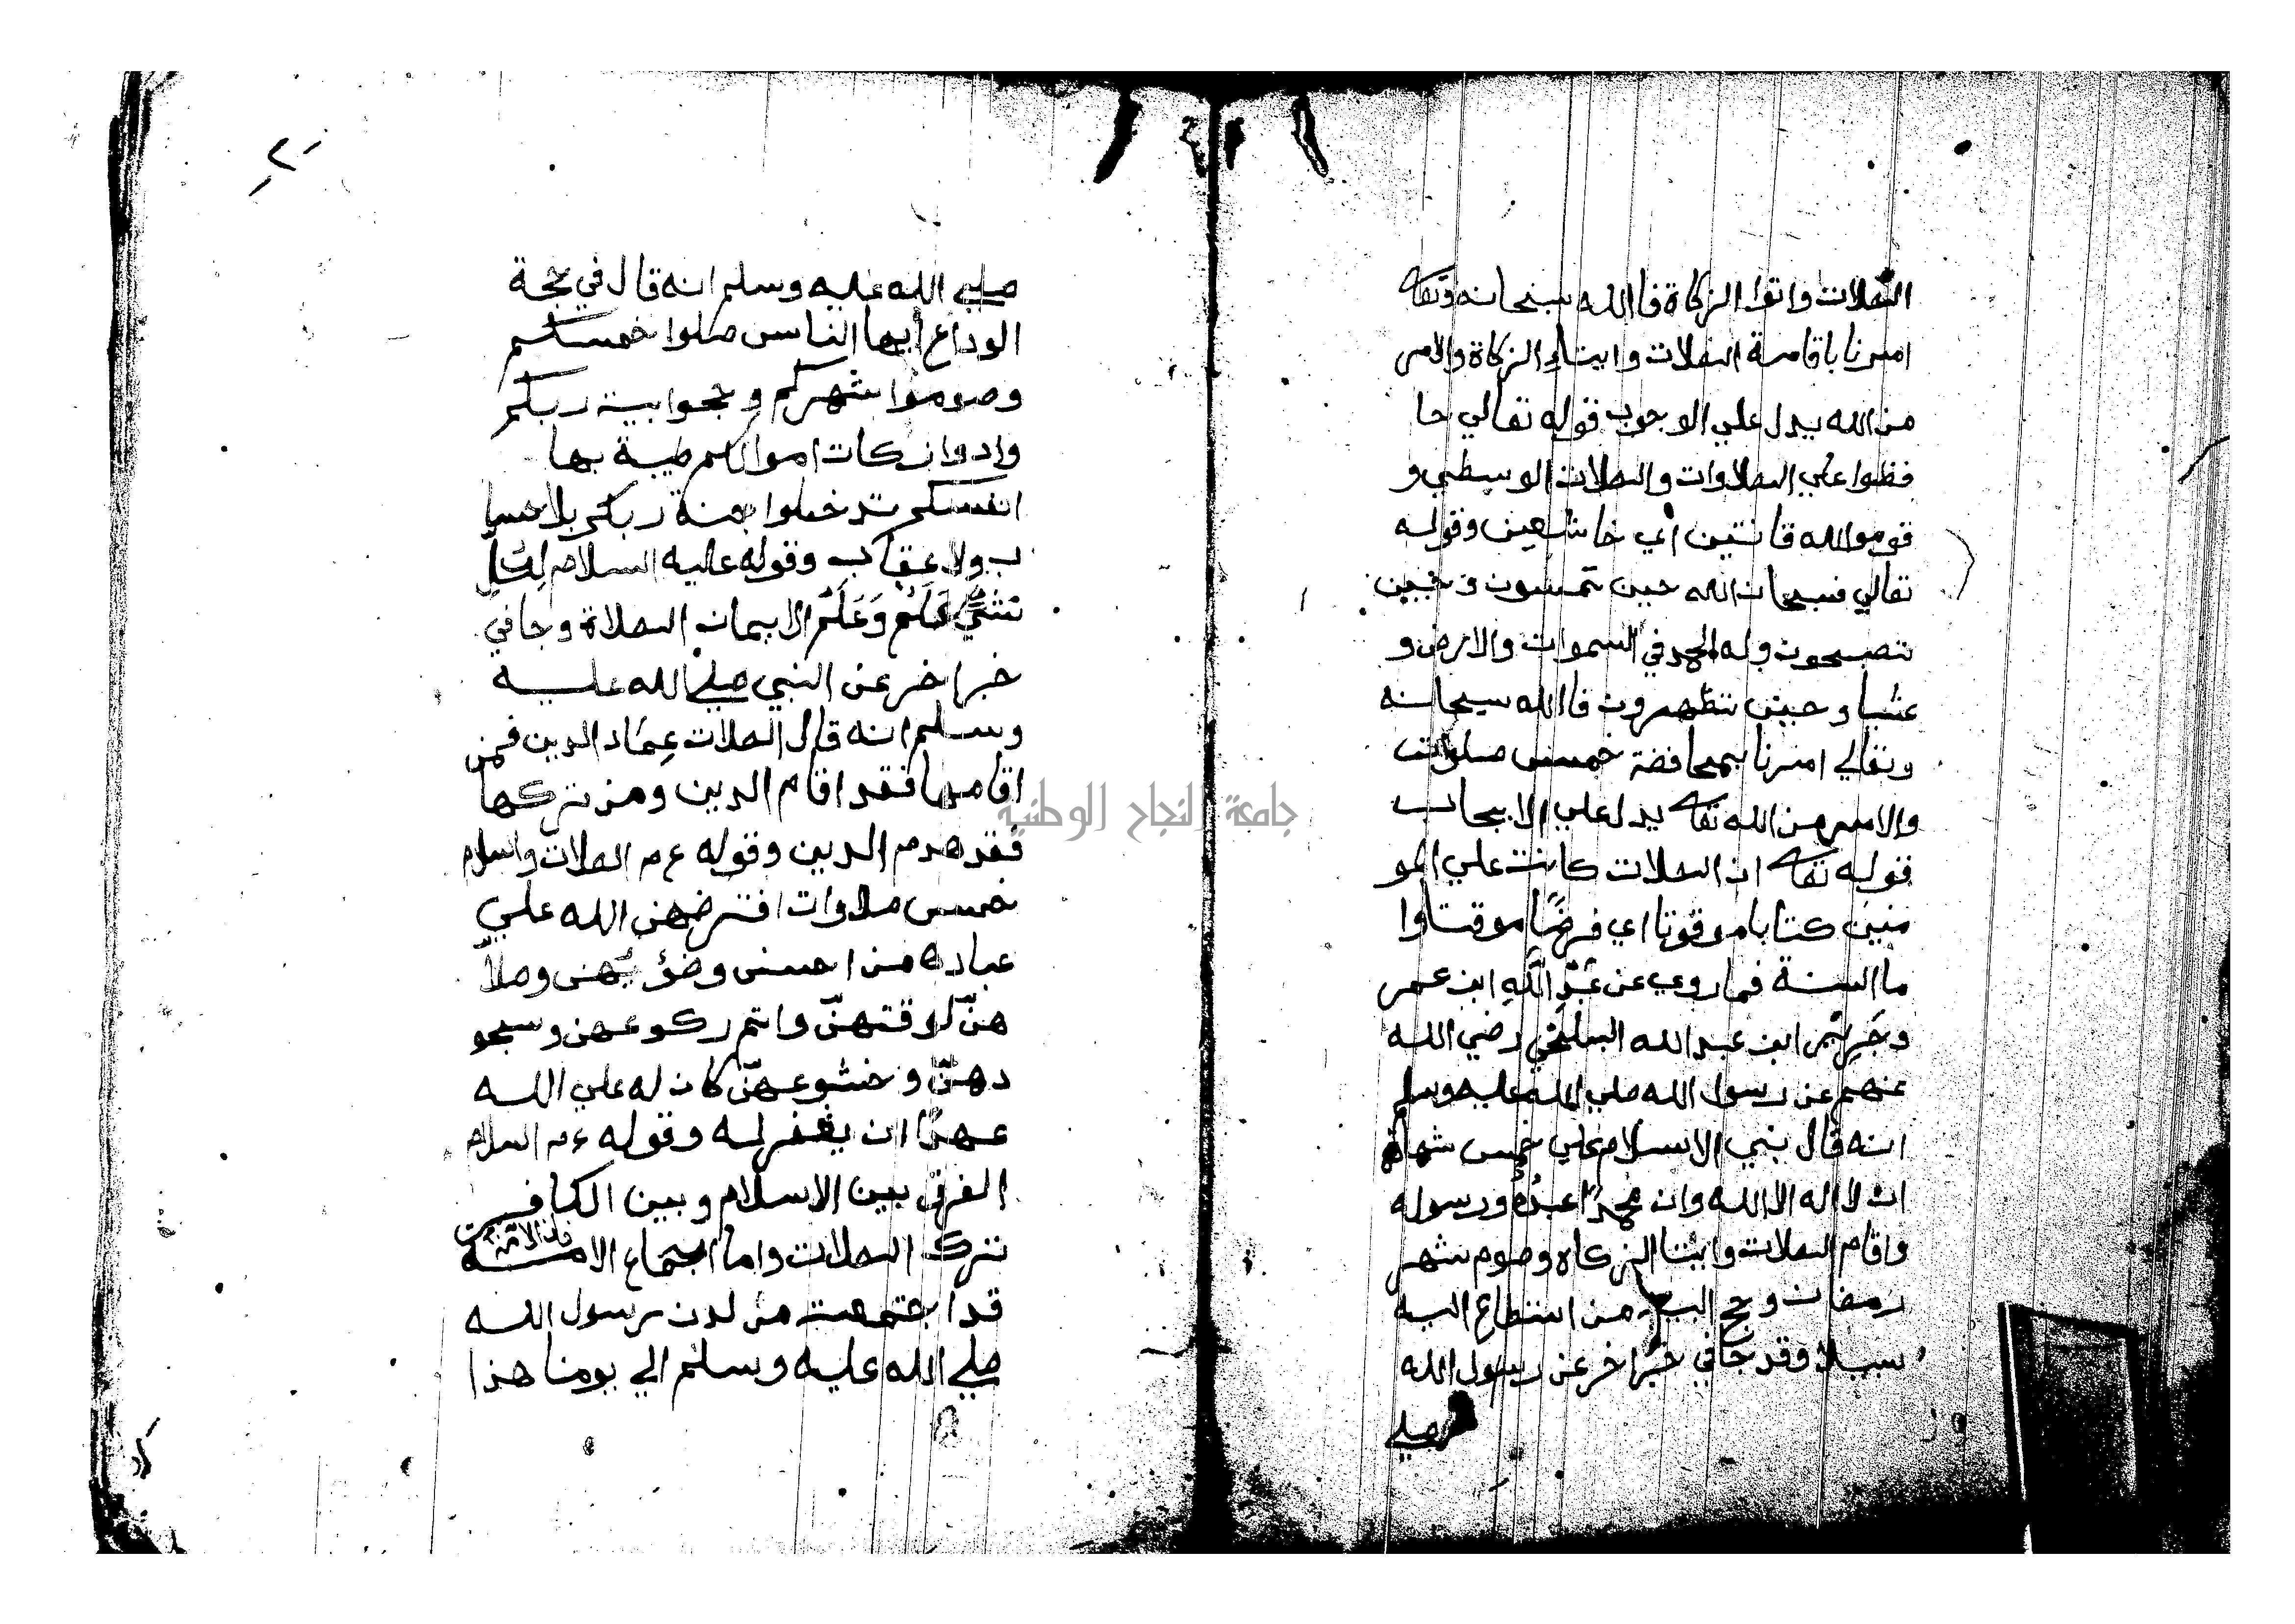 الصلات واتوا الزكاة فاالله سبحانه وتعا
امرنا باقامة الصلات وايتاء الزكاة والامر
من الله يدل علي الوجوب قوله تعالي حا
فظوا علي الصلاوات والصلات الوسطي و
قوموالله قانتين اي خاشعين وقوله
تعالي فسبحان الله حين تمسون وحين
تصبحون وله الحمد في السموات والارض و
عشيا وحين تظهرون فاالله سبحانه
وتعالي امرنا بمحافضة خمس صلوات
والامر من الله تعا يدل علي الايجاب
قوله تعا ان الصلات كانت علي المو
منين كتابا موقوتا اي فرضًا موقتا وا
ما السنة فما روي عن عَبْدِ اللَّهِ ابن عمر
وجرير ابن عبد الله رضي الله
عنهم عن رسول الله صلي الله عليه وسلم
انه قال بني الاسلام علي خمس شهادة
ان لا اله الا الله وان محمدًا عبدُهُ ورسوله
واقام الصلات وايتا الزكاة وصوم شهر
رمضان وحج البيت من استطاع اليه
سبيلا وقد جا في خبرا خر عن رسول الله
صلي
صلي الله عليه وسلم انه قال في حجة
الوداع أيها الناس صلوا خمسكم
وصوموا شهركم وحجوا بيت ربكم
وادوا زكات اموالكم طيبة بها
انفسكم تدخلوا جنة ربكم بلا حسا
ب ولا عقاب وقوله عليه السلام لِكلِّ
شئيٍ عَلَم وَعَلَم الايمان الصلاة وجا في
خبرا خر عن النبي صلي الله عليه
وسلم انه قال الصلات عِمَاد الدين فمن
اقامها فقد اقام الدين ومن تركها
فقد هدم الدين وقوله ع م الصلات والسلام
خمس صلاوات افترضهن الله علي
عباده من احسن وضؤيهن وصلاّ
هنّ لوقتهنّ واتم ركوعهن وسجو
دهنّ وخشوعهنّ كان له علي الله
عهدًا ان يغفر له وقوله ع م السلام
الفرق بين الاسلام وبين الكافر
ترك الصلات واما اجتماع الامة فان الامة
قد اجتمعت من لدن رسول الله
صلي الله عليه وسلم الي يومنا هذا
جامعة النجاح الوطنية